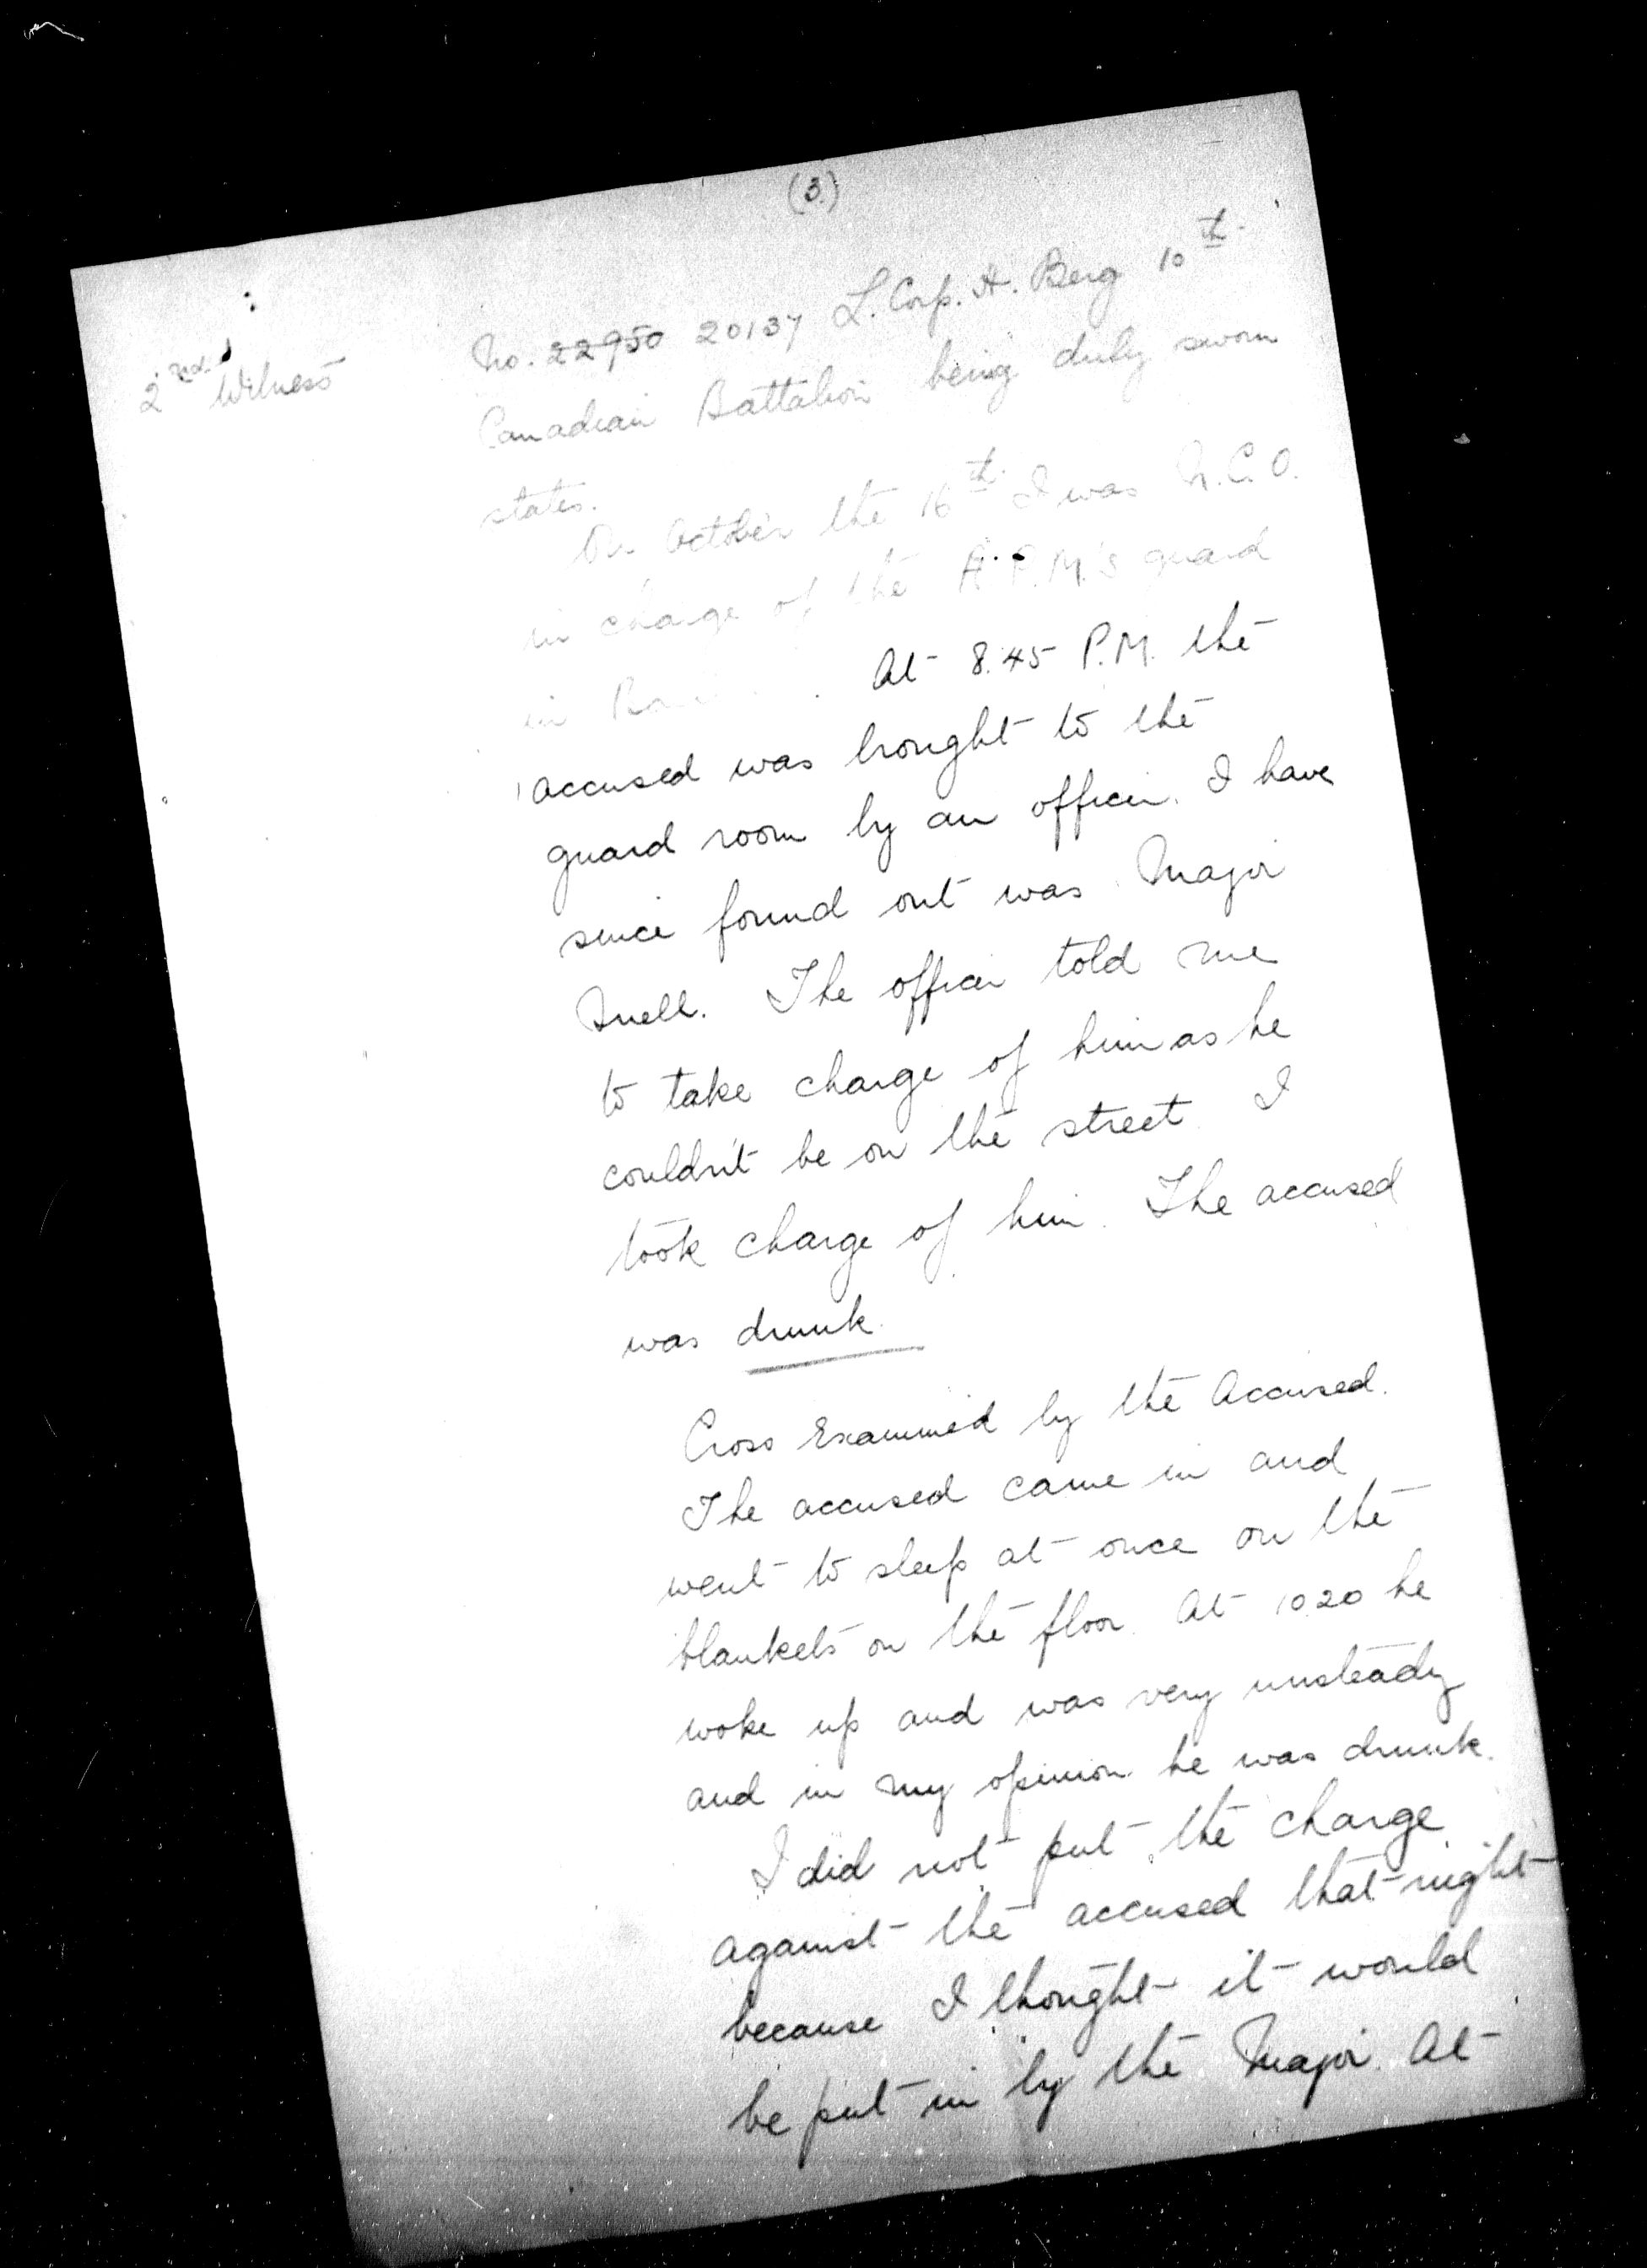 (3.)
2nd Witness
No. 22950 20137 L. Corp. A. Berg 10th
Canadian Battalion being duly sworn
states.
On October the 16th I was N.C.O.
in charge of the A.P.M.'s guard
in
At 8.45 P.M. the
accused was brought to the
guard room by an officer. I have
since found out was Major
Snell. The officer told me
to take charge of him as he
couldn't be on the street I
took charge of him. The accused
was drunk.
Cross Examined by the Accused.
The accused came in and
went to sleep at once on the
blankets on the floor. At 10.20 he
woke up and was very unsteady
and in my opinion he was drunk.
I did not put the charge
against the accused that night
because I thought it would
be put in by the Major. At